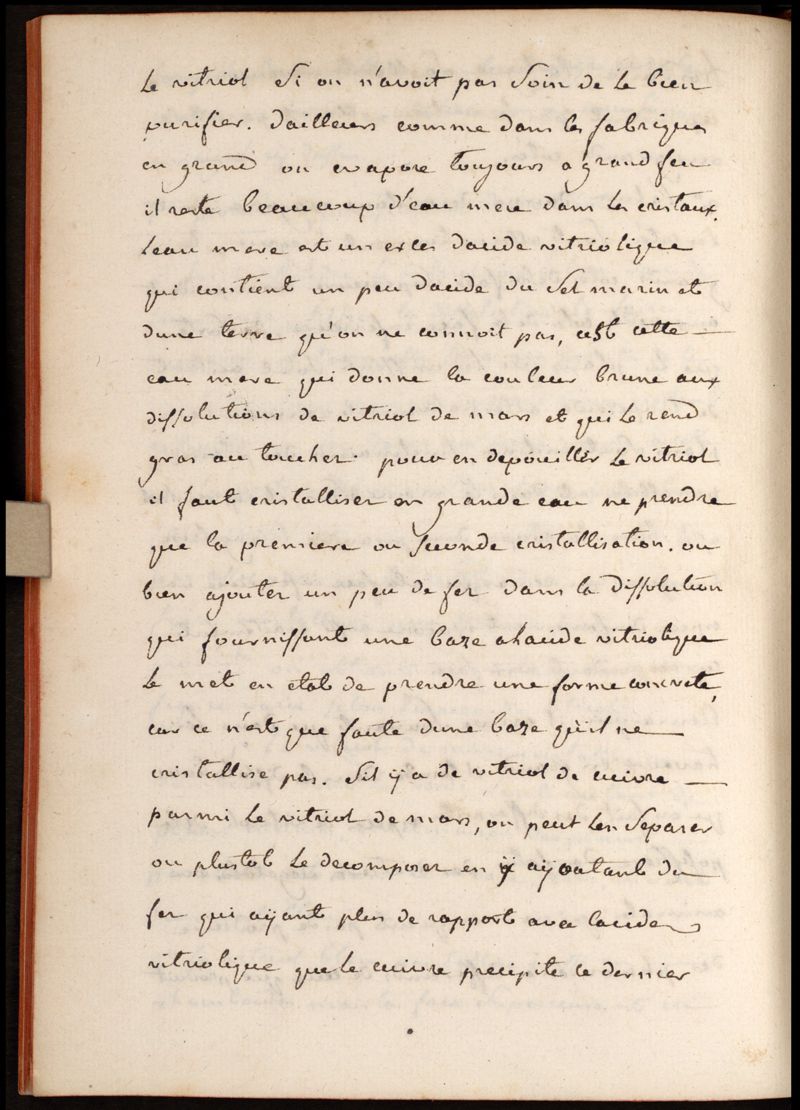 le vitriol Si on n'avoit pas Soin de le bien
purifier. dailleurs comme dans les fabriques
en grand on evapore toujours a grand feu
il reste beaucoup d'eau mere dans les cristaux.
Leau mere est un exces dacide vitriolique
qui contient un peu dacide du Sel marin et
dune terre qu'on ne connoit pas, cest cette
eau mere qui donne la couleur brune aux
dissolutions de vitriol de mars et qui le rend
gras au toucher. pour en depouiller le vitriol
il faut cristalliser en grande eau ne prendre
que la premiere ou Seconde cristallisation. ou
bien ajouter un peu de fer dans la dissolution
qui fournissant une baze a lacide vitriolique
le met en etat de prendre une forme concrete,
car ce n'est que faute dune baze qu'il ne
cristallise pas. Sil ÿ a de vitriol de cuivre
parmi le vitriol de mars, on peut len Separer
ou plustot le decomposer en ÿ ajoutant du
fer qui aÿant plus de rapport avec lacide
vitriolique que le cuivre precipite ce dernier